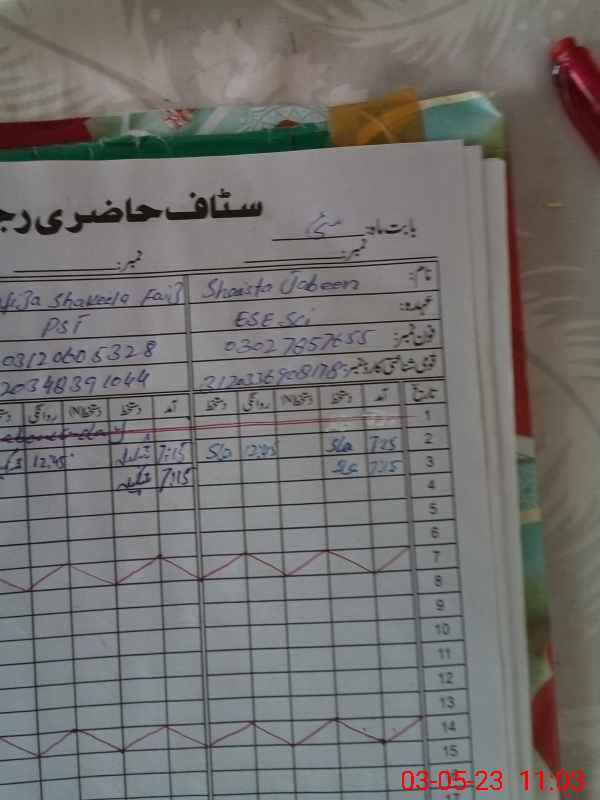 سٹاف حاضری رجـ
بابت ماہ: مئی
نمبر: نمبر:
نام: Shaista Jabeen Shakeela
عہدہ: ESE Sci PST
فون نمبر: 03027857655
قومی شناختی کارڈ نمبر: 20348391044
تاریخ آمد دستخط (N)دستخط روانگی دستخط آمد دستخط (N)دستخط روانگی
1
2 7:25 Sla 12:45 Sla 7:15 12:45
3 7:25 Sla 7:15
4
5
6
7
8
9
10
11
12
13
14
15
03-05-23 11:03